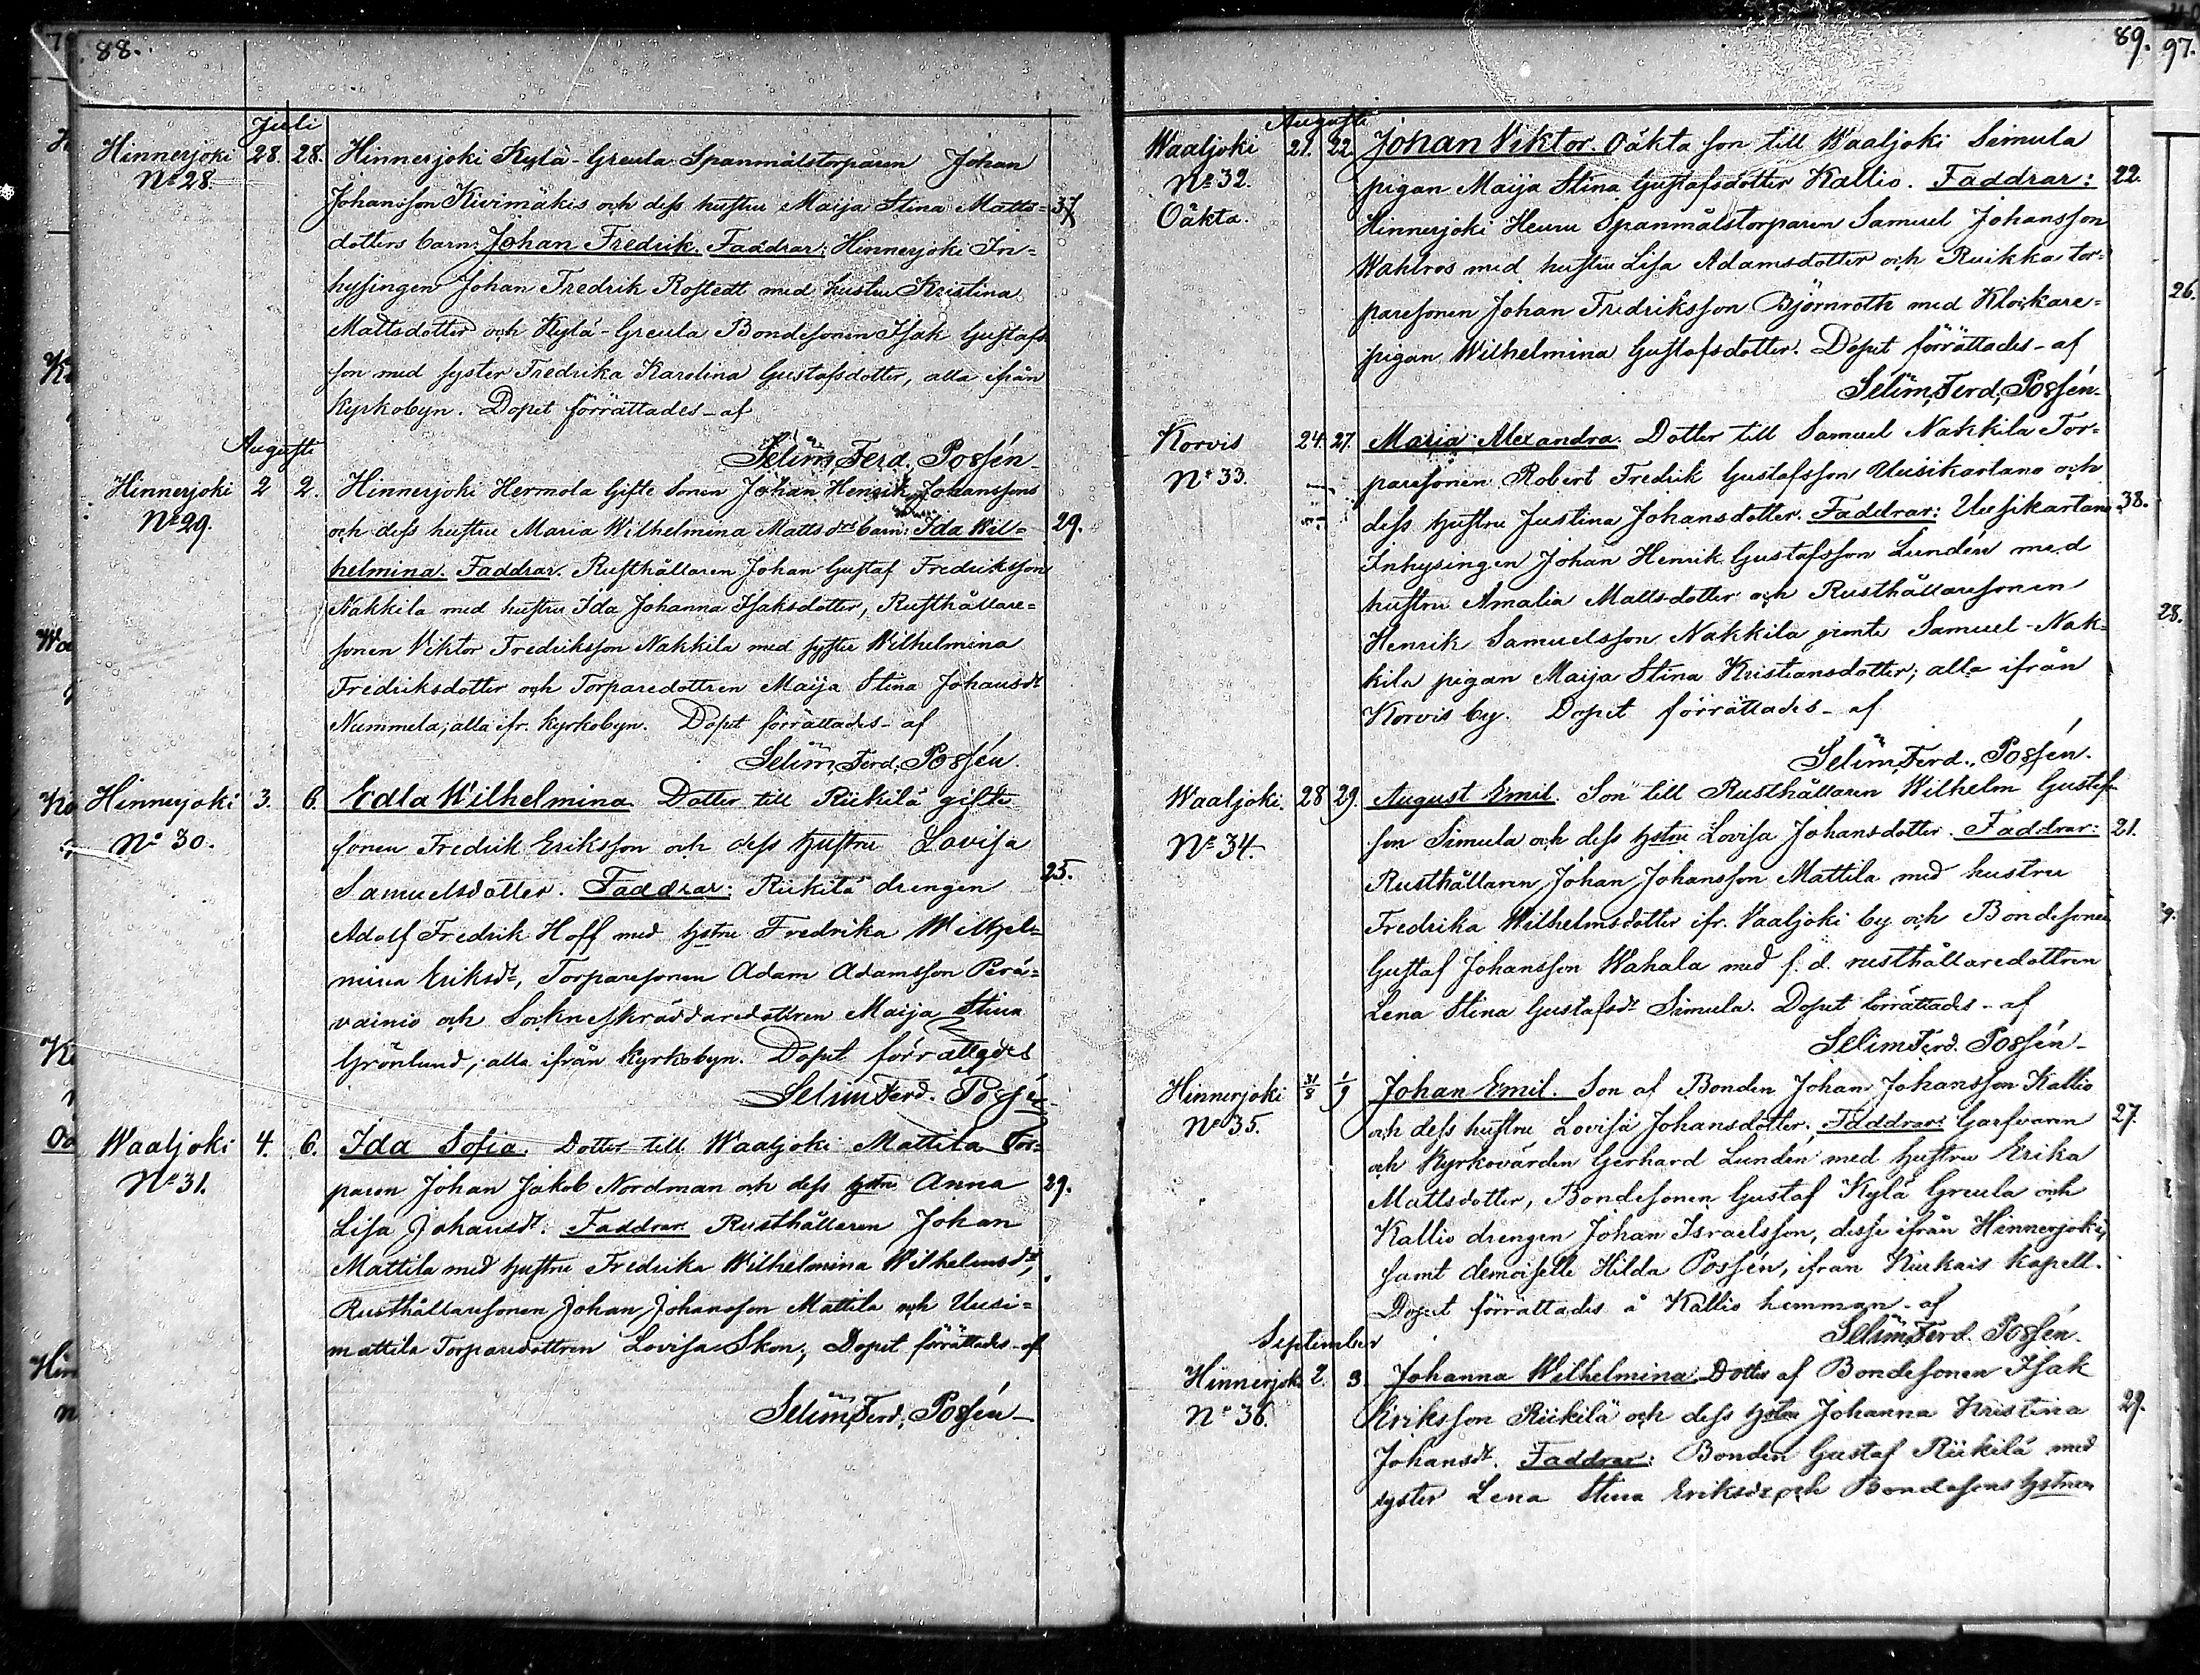 88.
Juli
Hinnerjoki 28. 28. Hinnerjoki Kylä-Greula Spanmålstorparen Johan
No 28. Johansson Kivimäkis och dess hustru Maija Stina Matts- 37
dotters barn: Johan Fredrik. Faddrar: Hinnerjoki In-
hysingen Johan Fredrik Rostedt med hustru Kristina
Mattsdotter och Kylä-Greula Bondesonen Isak Gustafs
son med syster Fredrika Karolina Gustafsdotter, alla ifrån
Kyrkobyn. Dopet förrättades af
Selim Ferd. Possén
Augusti
Hinnerjoki 2 2. Hinnerjoki Hermola Gifte Sonen Johan Henrik Johanssons
No 29. och dess hustru Maria Wilhelmina Matts drs barn: Ida Wil= 29.
helmina. Faddrar. Rusthållaren Johan Gustaf Fredriksson
Nakkila med hustru Ida Johanna Isaksdotter, Rusthållare=
sonen Viktor Fredriksson Nakkila med syster Wilhelmina
Fredriksdotter och Torparedottren Maija Stina Johansdr
Nummela; alla ifr. Kyrkobyn. Dopet förrättades af
Selim Ferd. Possén
Hinnerjoki 3. 6. Edla Wilhelmina Dotter till Riikilä gifte
No 30. sonen Fredrik Eriksson och dess hustru Lovisa
Samuelsdotter. Faddrar: Riikilä drengen 25.
Adolf Fredrik Hoff med hstru Fredrika Wilhel=
mina Eriksdr, Torparesonen Adam Adamsson Perä=
vainio och Sockneskräddaredottren Maija Stina
Grönlund; alla ifrån Kyrkobyn. Dopet förrättades
af
Selim Ferd. Possén
Waaljoki 4. 6. Ida Sofia. Dotter till Waaljoki Mattila Tor=
No 31. paren Johan Jakob Nordman och dess hstru Anna 29.
Lisa Johansdr. Faddrar Rusthållaren Johan
Mattila med hustru Fredrika Wilhelmina Wilhelmsdr,
Rusthållaresonen Johan Johansson Mattila och Uusi=
mattila Torparedottren Lovisa Skon; Dopet förrättades af
Selim Ferd. Possén
89.
Augusti
Waaljoki 21. 22 Johan Viktor. Oäkta son till Waaljoki Simula
No 32. pigan Maija Stina Gustafsdotter Kallio. Faddrar: 22.
Oäkta. Hinnerjoki Heuru Spanmålstorparen Samuel Johansson
Wahlros med hustru Lisa Adamsdotter och Ruikka tor=
paresonen Johan Fredriksson Björnroth med Klockare=
pigan Wilhelmina Gustafsdotter. Dopet förrättades af
Selim Ferd. Possén
Korvis 24. 27. Maria Alexandra. Dotter till Samuel Nakkila Tor=
No 33. paresonen Robert Fredrik Gustafsson Uusikartano och
dess hustru Justina Johansdotter. Faddrar: Uusikartano 38.
Inhysingen Johan Henrik Gustafsson Lundén med
hustru Amalia Mattsdotter och Rusthållaresonen
Henrik Samuelsson Nakkila jemte Samuel-Nak=
kila pigan Maija Stina Kristiansdotter; alla ifrån
Korvis by. Dopet förrättades af
Selim Ferd. Possén.
Waaljoki. 28 29. August Emil. Son till Rusthållaren Wilhelm Gustafs
No 34. son Simula och dess hstru Lovisa Johansdotter. Faddrar: 21.
Rusthållaren Johan Johansson Mattila med hustru
Fredrika Wilhelmsdotter ifr. Vaaljoki by och Bondesonen
Gustaf Johansson Wahala med f. d. rusthållaredottren
Lena Stina Gustafsdr Simula. Dopet förrättades af
Selim Ferd. Possén
Hinnerjoki 31/8 1/9 Johan Emil. Son af Bonden Johan Johansson Kallio
No 35. och dess hustru Lovisa Johansdotter. Faddrar: Garfvaren 27.
och Kyrkovärden Gerhard Lunden med hustru Erika
Mattsdotter, Bondesonen Gustaf Kylä Greula och
Kallio drengen Johan Israelsson, desse ifrån Hinnerjoki,
samt demoiselle Hilda Possén, ifrån Kiukais Kapell.
Dopet förrättades å Kallio hemman af
Selim Ferd. Possén.
September
Hinnerjoki 2. 3. Johanna Wilhelmina Dotter af Bondesonen Isak
No 36. Eriksson Riikilä och dess hstru Johanna Kristina 29.
Johansdr. Faddrar: Bonden Gustaf Riikilä med
syster Lena Stina Eriksdr och Bondesons hstrun
97.
26.
28.